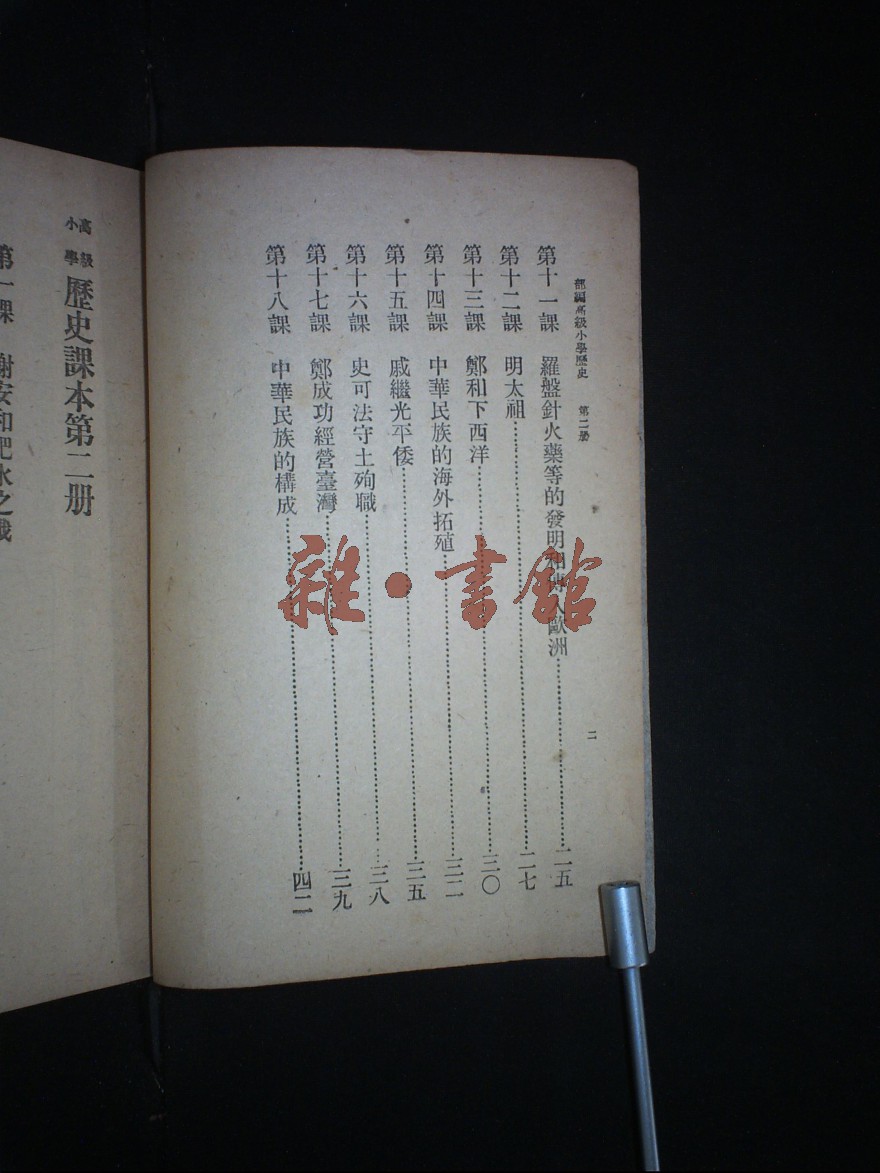 部編高級小學歷史 第二册 二
第十一課 羅盤針火藥等的發明和傳入歐洲……二五
第十二課 明太祖……二七
第十三課 鄭和下西洋……三〇
第十四課 中華民族的海外拓殖……三二
第十五課 戚繼光平倭……三五
第十六課 史可法守土殉職……三八
第十七課 鄭成功經營臺灣……三九
第十八課 中華民族的構成……四二
高級小學 歷史課本第二册
第一課 謝安和肥水之戰
雜·書館